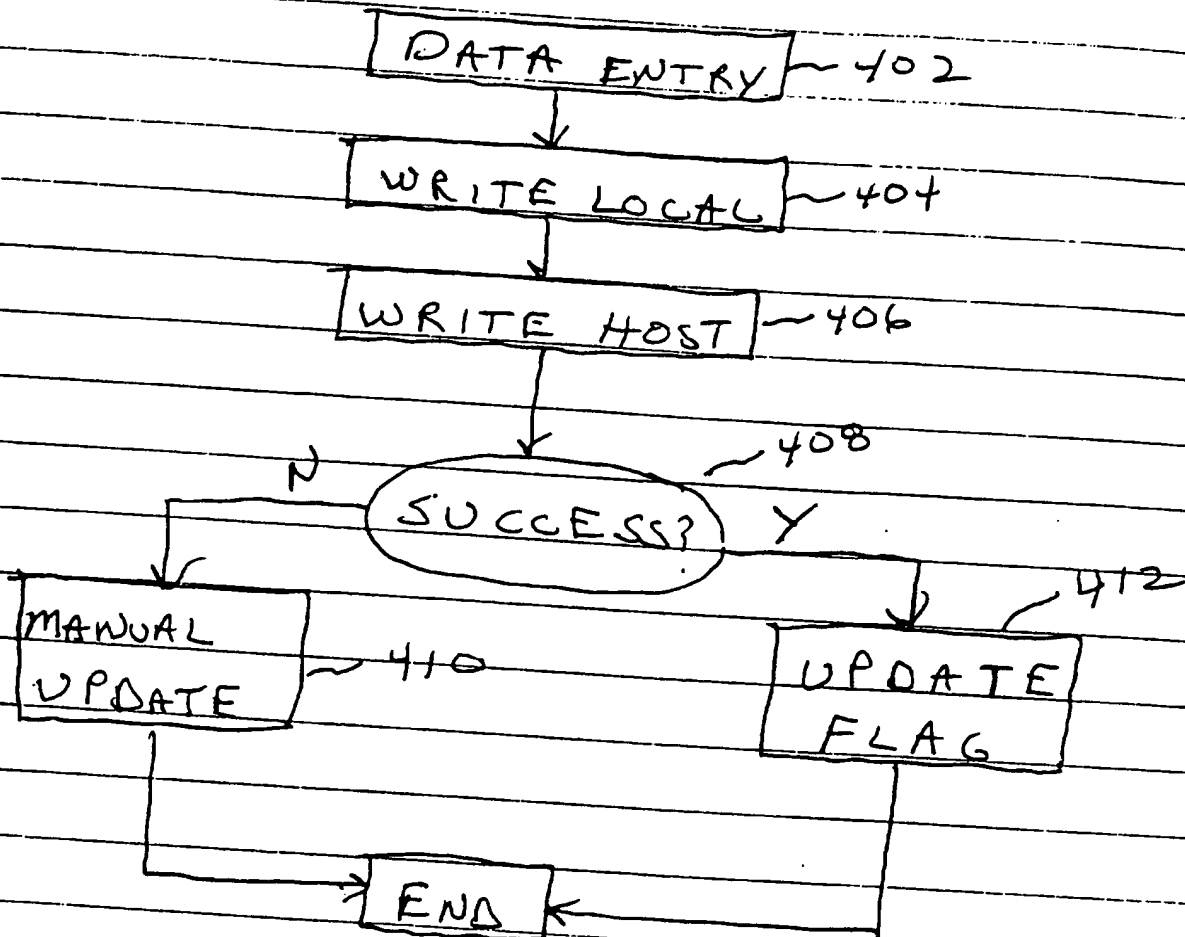 DATA ENTRY 402
WRITE LOCAL 404
WRITE HOST 406
408
N
SUCCESS?
Y
412
MANUAL
UPDATE
410
UPDATE
FLAG
END